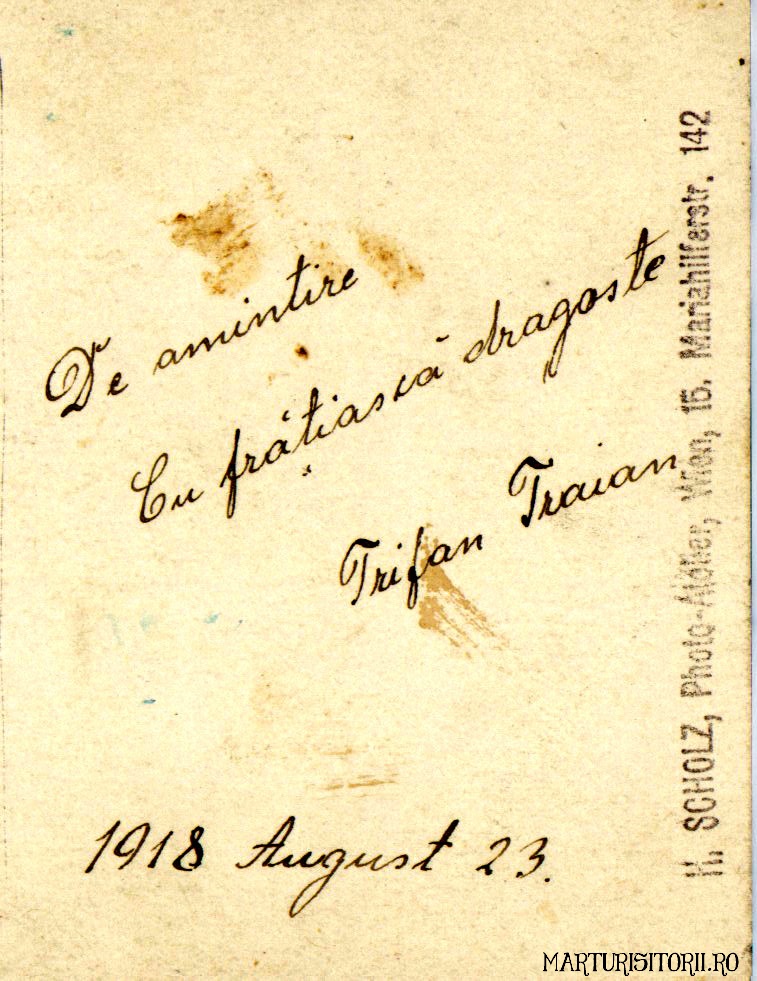 De amintire
Cu frățiască dragoste
Trifan Traian
1918 August 23.
H. SCHOLZ, Photo-Atelier, Wien, 15. Mariahilferstr. 142
MARTURISITORII.RO